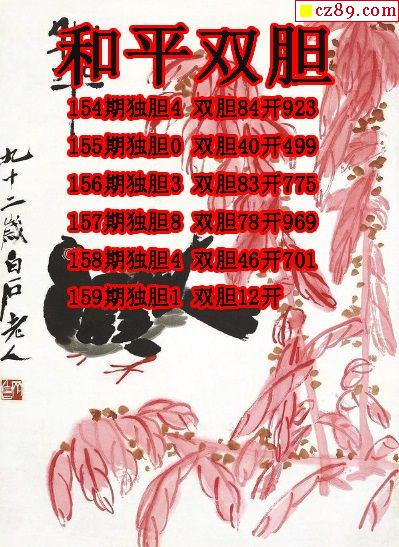 cz89.com
和平双胆
154期独胆4 双胆84开923
155期独胆0 双胆40开499
156期独胆3 双胆83开775
157期独胆8 双胆78开969
158期独胆4 双胆46开701
159期独胆1 双胆12开
九十二岁白石老人